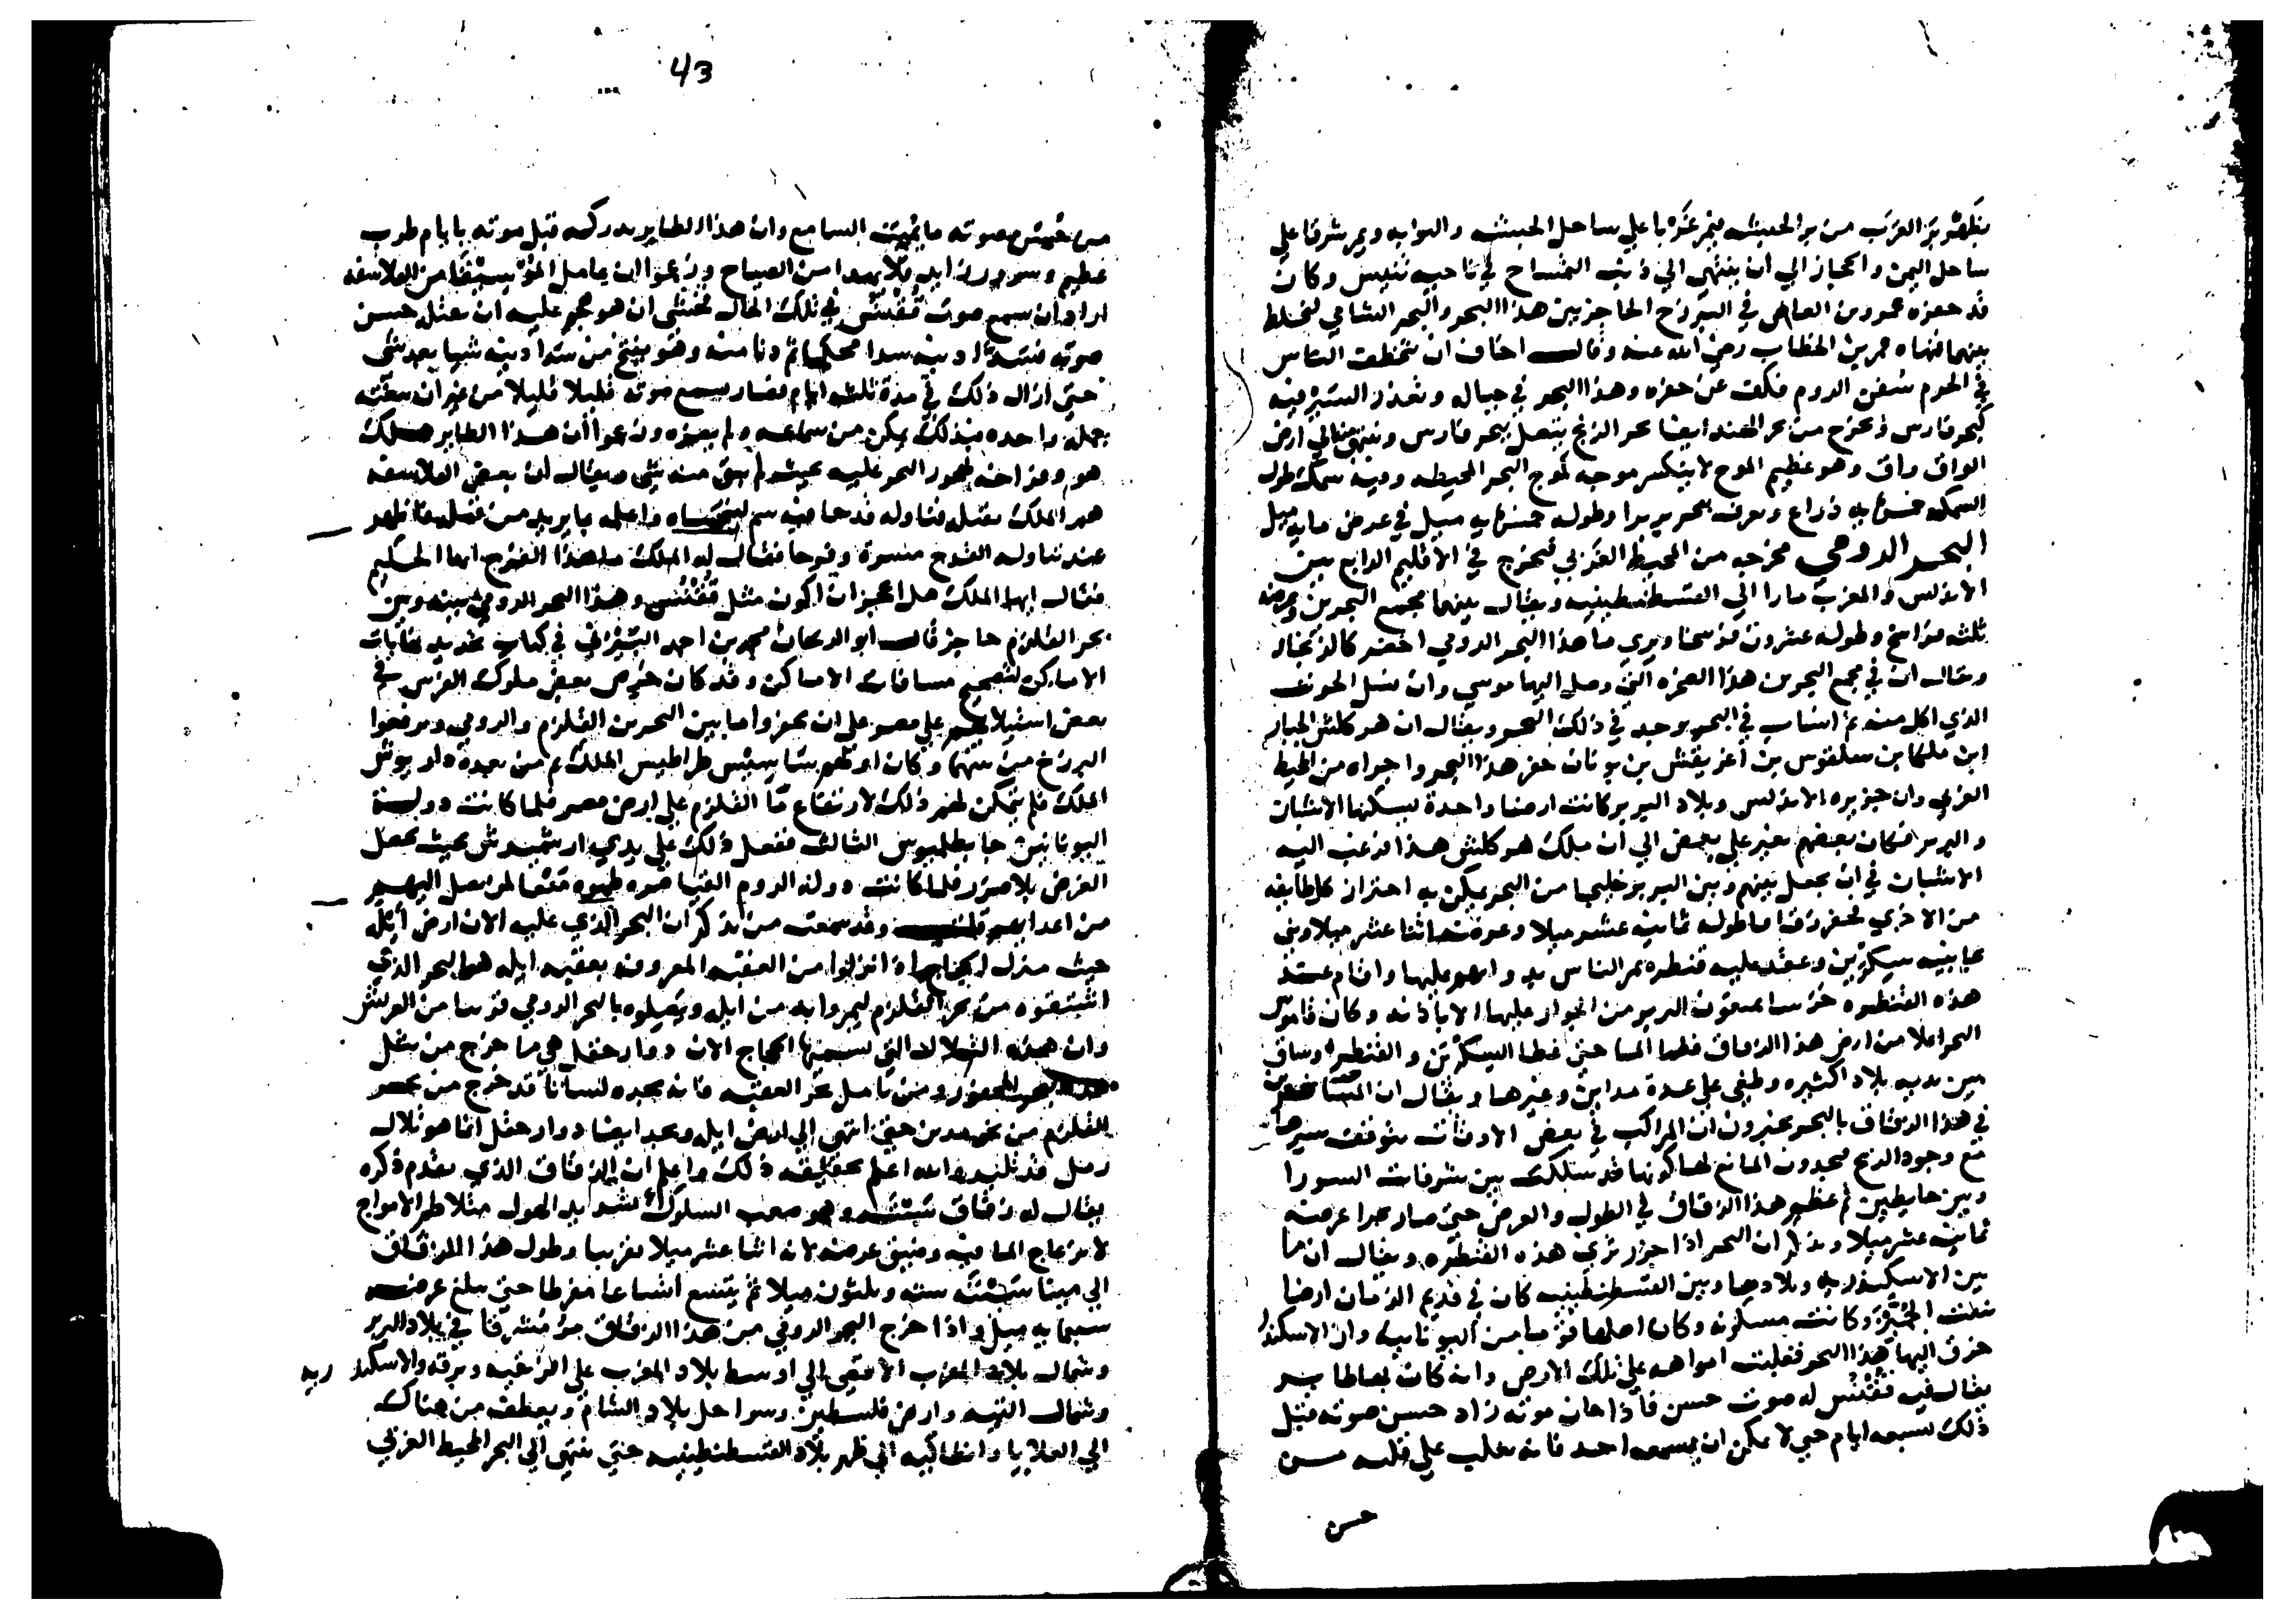 بظهر بر العرب من بر الحبشه فيمر غربا علي ساحل الحبشه والنوبه ويمر شرقا علي
ساحل اليمن والحجاز الي ان ينتهي الي ذنب التمساح في ناحيه تنيس وكان
قد حفره عمرو بن العاص في البرزخ الحاجز بين هذا البحر والبحر الشامي ليختلط
بينهما فنهاه عمر بن الخطاب رضي الله عنه وقال اخاف ان تتخطف الناس
في الحرم سفن الروم فكف عن حفره وهذا البحر في جباله وتعذر السير فيه
كبحر فارس ويخرج من بحر الهند ايضا بحر الزنج يتصل ببحر فارس وينتهي الي ارض
الواق واق وهو عظيم الموج لا ينكسر موجه كموج البحر المحيط وفيه سمك طول
السمكه خمسمايه ذراع ويعرف ببحر بربرا وطوله خمسمايه ميل في عرض مايه ميل
البحر الرومي مخرجه من المحيط الغربي فيخرج في الاقليم الرابع بين
الاندلس والمغرب مارا الي القسطنطينيه ويقال بينهما مجمع البحرين وعرضه
ثلثه فراسخ وطوله عشرون فرسخا ويري ما هذا البحر الرومي اخضر كالزنجار
ويقال ان في مجمع البحرين هذا الصخره التي وصل اليها موسي وان نسل الحوت
الذي اكل منه ثم انساب في البحر يوجد في ذلك البحر ويقال ان هركلش الجبار
ابن ملكا بن سلقوس بن أغريقش بن يونان حفر هذا البحر واجراه من المحيط
الغربي وان جزيره الاندلس وبلاد البربر كانت ارضا واحدة يسكنها الاشبان
والبربر فكان بعضهم يغير علي بعض الي ان ملك هركلش هذا فرغب اليه
الاشبان في ان يجعل بينهم وبين البربر خليجا من البحر يمكن به احتراز كل طايفه
من الاخري فحفر زقاقا طوله ثمانيه عشر ميلا وعرضه اثنا عشر ميلا وبني
بجانبيه سيكرين وعقد عليه قنطره يمر الناس عليها واقام عند
هذه القنطره حرسا يمنعون البربر من الجواز عليها الا باذنه وكان قاموس
البحر اعلا من ارض هذا الزقاق فطما الما حتي غطا السيكرين والقنطره وساق
بين يديه بلاد اكثيره وطغي علي عدة مداين وغيرها ويقال ان المسافرين
في هذا الزقاق بالبحر يخبرون ان المراكب في بعض الاوقات يتوقف سيرها
مع وجود الريح فيجدون المانع لها كونها قد سلكت بين شرفات السور
وبين حايطين ثم عظم هذا الزقاق في الطول والعرض حتي صار بحرا عرضه
ثمانيه عشر ميلا ويذكر ان البحر اذا جزر تري هذه القنطره ويقال ان ما
بين الاسكندريه وبلادها وبين القسطنطينيه كان في قديم الزمان ارضا
تنبت الجميز وكانت مسكونه وكان اهلها قوما من اليونانيه وان الاسكندر
خرق اليها هذا البحر فغلبت امواهه علي تلك الارض وانه كان بها طاير
يقال فيه قُقْنُس له صوت حسن فاذا حان موته زاد حسن صوته قبل
ذلك بسبعه ايام حتي لا يمكن ان يسمعه احد فانه يغلب علي قلبه من
حسن
43
من حسن صوته ما يميت السامع وان هذا الطاير يدركه قبل موته بايام طرب
عظيم وسرور زايد فلا يهدا من الصياح وزعموا ان عامل الموسيقا من الفلاسفه
اراد ان يسمع صوت قُقْنُس في تلك الحال فخشي ان هو هجم عليه ان يقتله حسن
صوته فسد اذنيه سدا محكما ثم دنا منه وهو يفتح من سد اذنيه شيا بعد شي
حتي ازال ذلك في مدة ثلثه ايام فصار يسمع صوته قليلا قليلا من غير ان يبغته
جمله واحده فبذلك تمكن من سماعه ولم يضره وزعموا أن هذا الطاير هلك
هو وفراخه بظهور البحر عليه بحيث لم يبق منه شي ويقال ان بعض الفلاسفه
هم الملك بقتله فناوله قدحا فيه سم ليشربه واعلمه بما يريد من قتله فظهر
عند تناوله القدح مسرة وفرحا فقال له الملك ما هذا الفرح ايها الحكيم
فقال ايها الملك هل اعجز ان اكون مثل قُقْنُس وهذا البحر الرومي بينه وبين
بحر القلزم حاجز قال ابو الريحان محمد بن احمد البيروني في كتاب تحديد نهايات
الاماكن لتصحيح مسافات الاماكن وقد كان حرص بعض ملوك الفرس في
بعض استيلايهم علي مصر علي ان يحفروا ما بين البحرين القلزم والرومي ويرفعوا
البرزخ من بينهما وكان اولهم ساسيس طراطيس الملك ثم من بعده داريوش
الملك فلم يتمكن لهم ذلك لارتفاع ما القلزم علي ارض مصر فلما كانت دولة
اليونانين جا بطلميوس الثالث ففعل ذلك علي يدي ارشميدش بحيث يحصل
الغرض بلا ضرر فلما كانت دوله الروم القياصره طموه منعا لمن يصل اليهم
من اعدايهم وقد سمعت من يذكر ان البحر الذي عليه الان ارض أيله
حيث منزل الحجاج اذا نزلوا من العقبه المعروفه بعقبه ايله هو البحر الذي
اشتقوه من بحر القلزم ليمروا به من ايله ويصلوه بالبحر الرومي قريبا من العريش
وان هذه التلال التي يسميها الحجاج الان دوار حقل هي ما خرج من تقل
الحفور ومن تامل بحر العقبه فانه يجده لسانا قد خرج من بحر
القلزم من نحو مدين حتي انتهي الي ارض ايله ويجد ايضا دوار حقل انما هو تلال
رمل قد تلبد والله اعلم بحقيقه ذلك واعلم ان الزقاق الذي تقدم ذكره
يقال له زقاق سَبْتَه وهو صعب السلوك شديد الهول متلاطم الامواج
لانزعاج الما فيه وضيق عرضه لانه اثنا عشر ميلا تقريبا وطول هذا الزقاق
الي مينا سَبْتَه سته وثلثون ميلا ثم يتسع اتساعا مفرطا حتي يبلغ عرضه
سبعمايه ميل واذا خرج البحر الرومي من هذا الزقاق مر مشرقا في بلاد البربر
وشمال بلاد المغرب الاقصي الي اوسط بلاد المغرب علي افريقيه وبرقه والاسكندريه
وشمال التيه وارض فلسطين وسواحل بلاد الشام ويعطف من هناك
الي العلايا وانطاكيه الي ظهر بلاد القسطنطينيه حتي ينتهي الي البحر المحيط الغربي